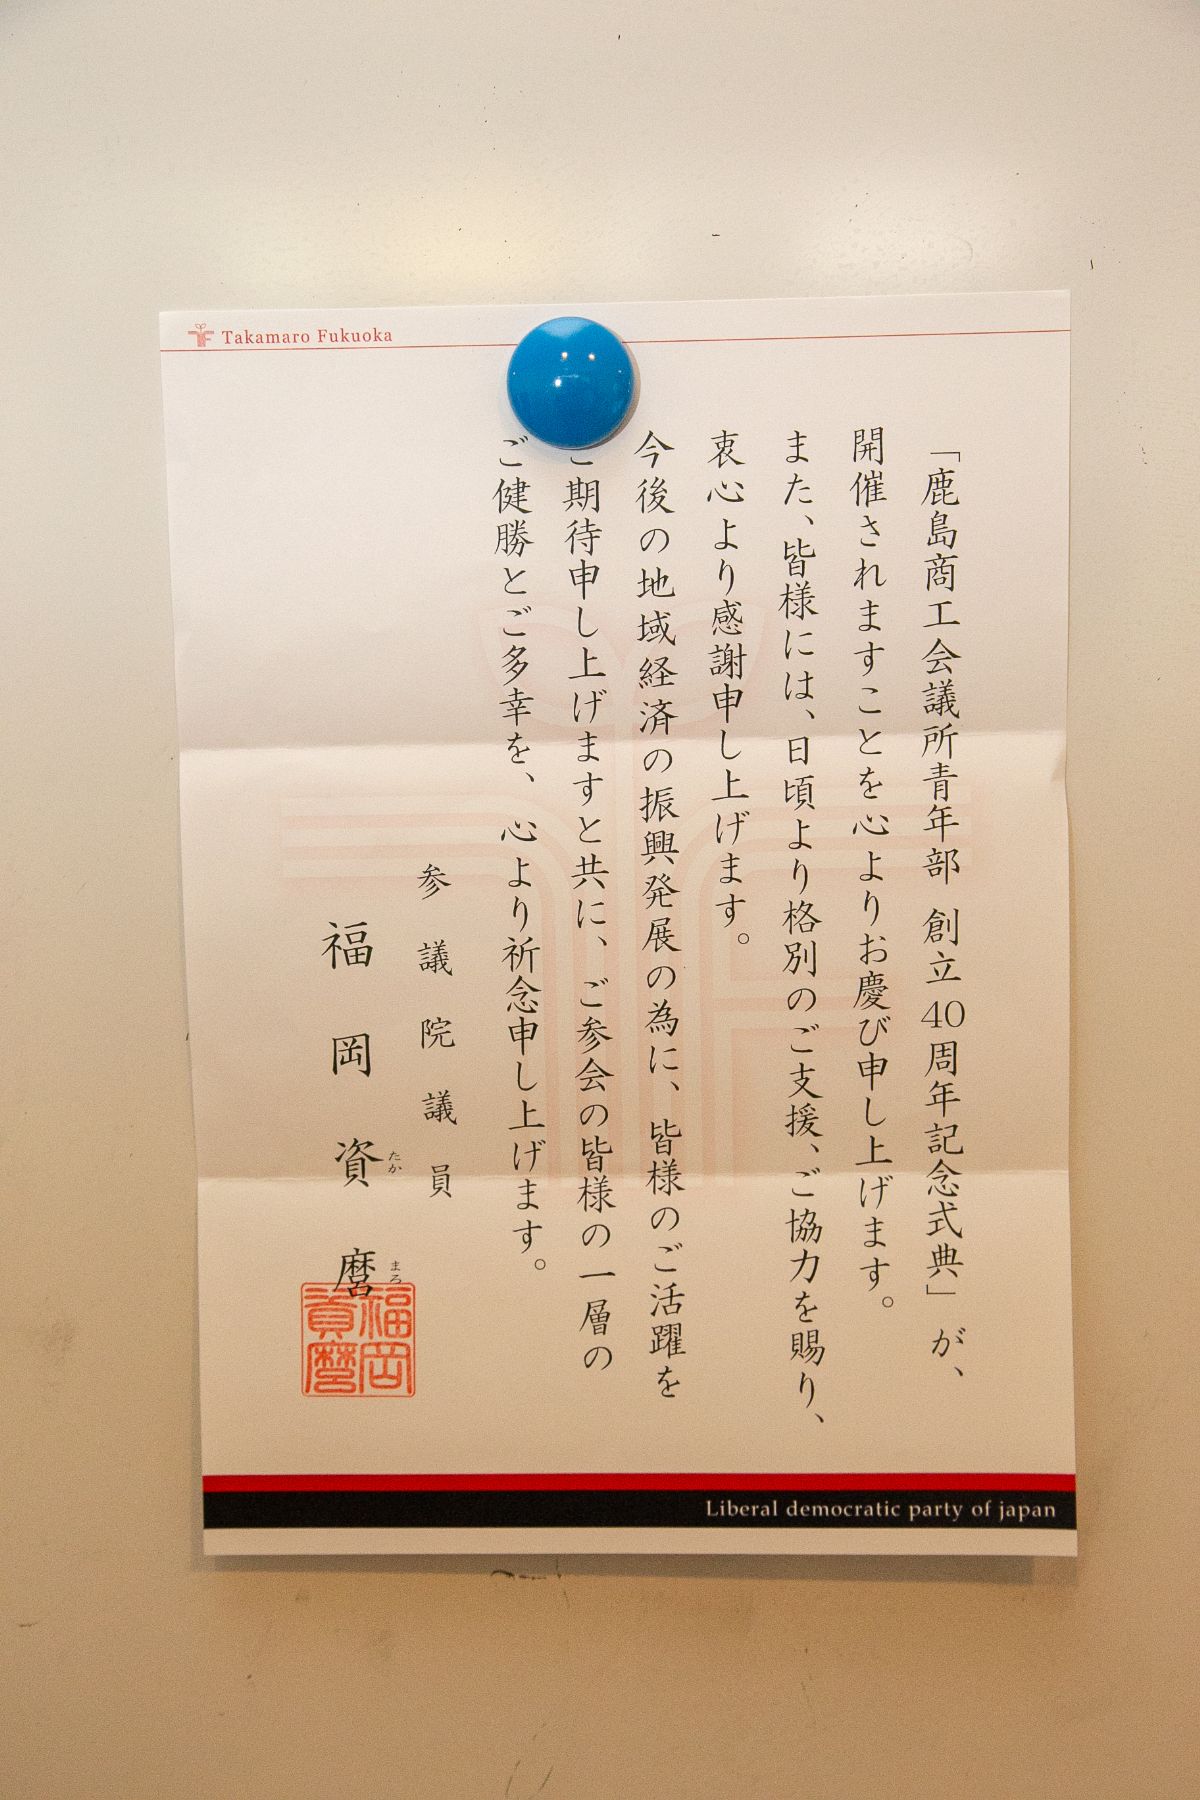 Takamaro Fukuoka
「鹿島商工会議所青年部 創立40周年記念式典」が、
開催されますことを心よりお慶び申し上げます。
また、皆様には、日頃より格別のご支援、ご協力を賜り、
衷心より感謝申し上げます。
今後の地域経済の振興発展の為に、皆様のご活躍を
ご期待申し上げますと共に、ご参会の皆様の一層の
ご健勝とご多幸を、心より祈念申し上げます。
参議院議員
福岡資麿
たかまろ
福岡資麿
Liberal democratic party of japan